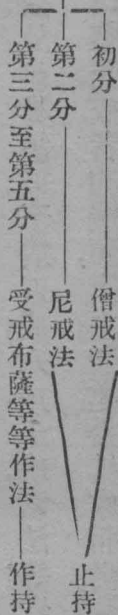 初分——僧戒法
第二分——尼戒法
止持
第三分至第五分——受戒布薩等等作法——作持